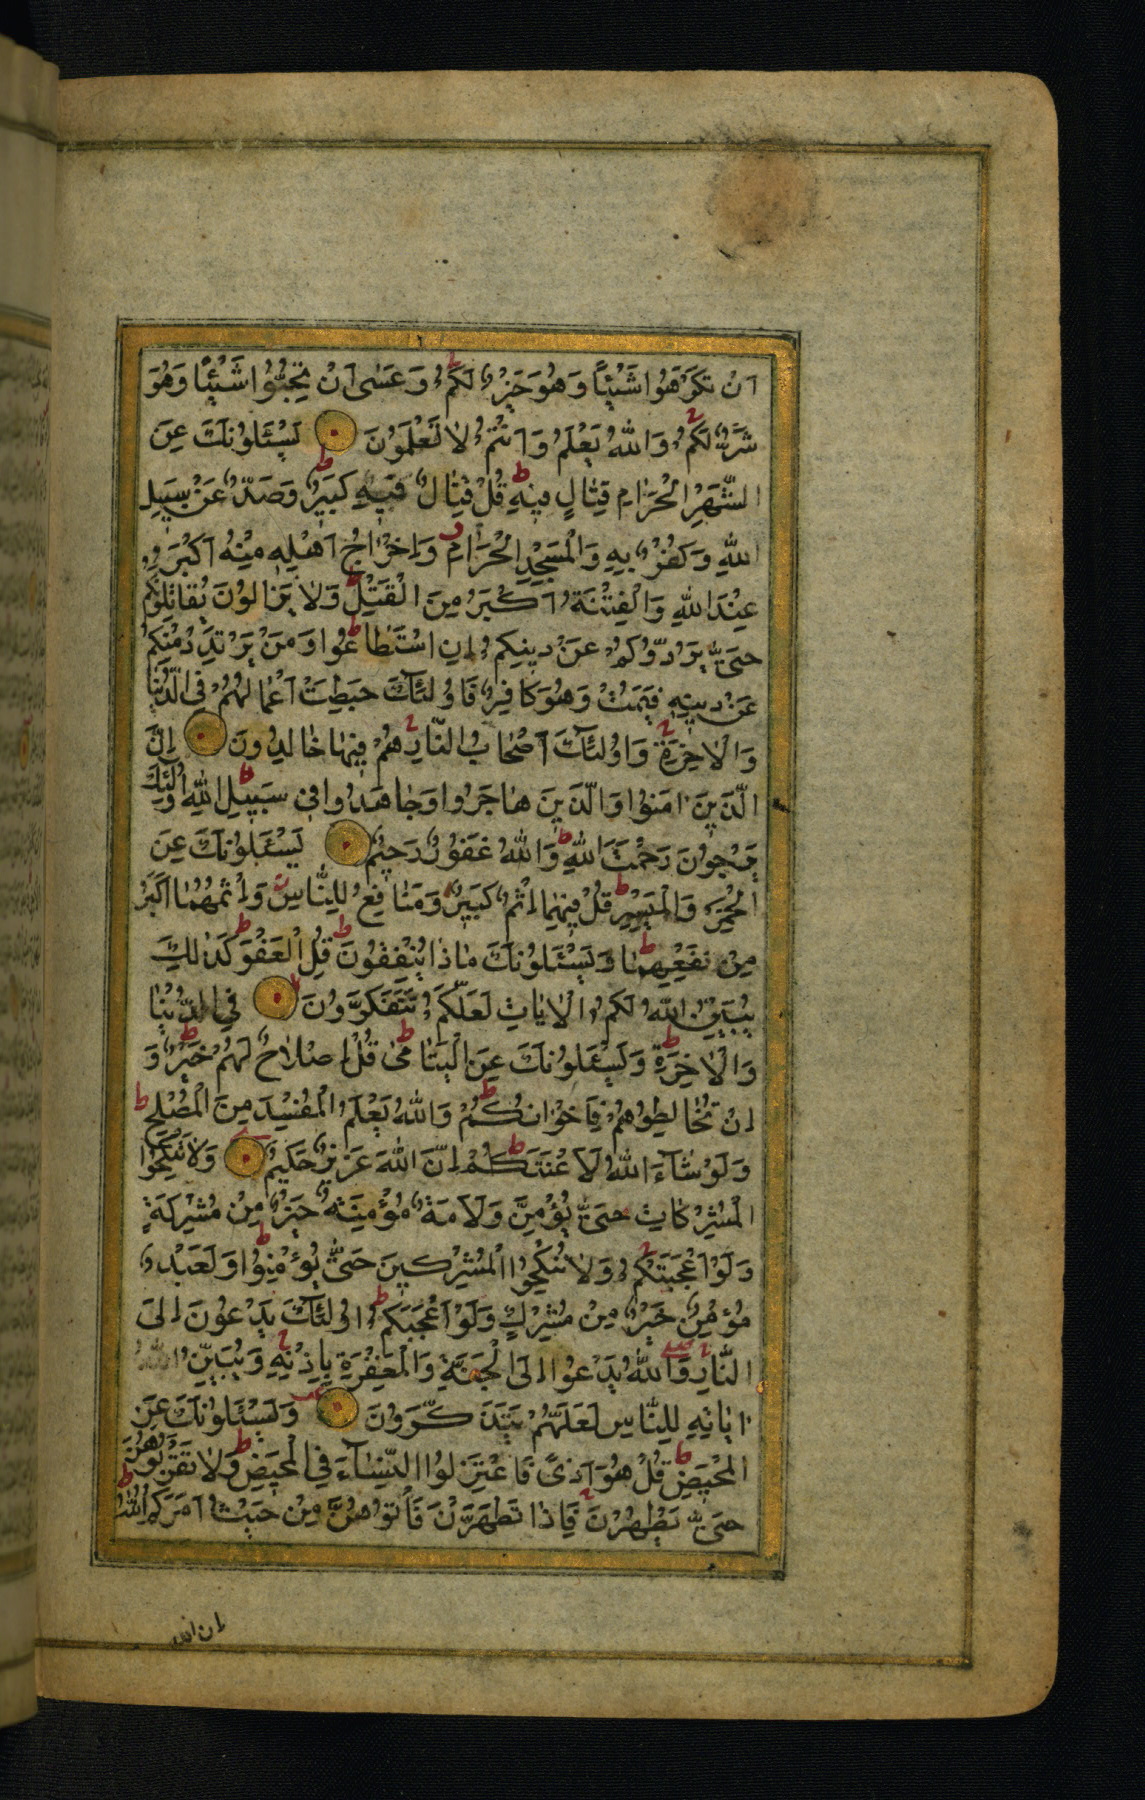 اَنْ تَكْرَهُوا شَيْئًا وَهُوَ خَيْرٌ لَكُمْ وَعَسٰى اَنْ تُحِبُّوا شَيْئًا وَهُوَ
شَرٌّ لَكُمْ وَاللّٰهُ يَعْلَمُ وَاَنْتُمْ لَا تَعْلَمُونَ يَسْئَلُونَكَ عَنِ
الشَّهْرِ الْحَرَامِ قِتَالٍ فِيهِ قُلْ قِتَالٌ فِيهِ كَبِيرٌ وَصَدٌّ عَنْ سَبِيلِ
اللّٰهِ وَكُفْرٌ بِهِ وَالْمَسْجِدِ الْحَرَامِ وَاِخْرَاجُ اَهْلِهِ مِنْهُ اَكْبَرُ
عِنْدَ اللّٰهِ وَالْفِتْنَةُ اَكْبَرُ مِنَ الْقَتْلِ وَلَا يَزَالُونَ يُقَاتِلُونَكُمْ
حَتّٰى يَرُدُّوكُمْ عَنْ دِينِكُمْ اِنِ اسْتَطَاعُوا وَمَنْ يَرْتَدِدْ مِنْكُمْ
عَنْ دِينِهِ فَيَمُتْ وَهُوَ كَافِرٌ فَاُولٰئِكَ حَبِطَتْ اَعْمَالُهُمْ فِي الدُّنْيَا
وَالْاٰخِرَةِ وَاُولٰئِكَ اَصْحَابُ النَّارِ هُمْ فِيهَا خَالِدُونَ اِنَّ
الَّذِينَ اٰمَنُوا وَالَّذِينَ هَاجَرُوا وَجَاهَدُوا فِي سَبِيلِ اللّٰهِ اُولٰئِكَ
يَرْجُونَ رَحْمَتَ اللّٰهِ وَاللّٰهُ غَفُورٌ رَحِيمٌ يَسْئَلُونَكَ عَنِ
الْخَمْرِ وَالْمَيْسِرِ قُلْ فِيهِمَا اِثْمٌ كَبِيرٌ وَمَنَافِعُ لِلنَّاسِ وَاِثْمُهُمَا اَكْبَرُ
مِنْ نَفْعِهِمَا وَيَسْئَلُونَكَ مَاذَا يُنْفِقُونَ قُلِ الْعَفْوَ كَذٰلِكَ
يُبَيِّنُ اللّٰهُ لَكُمُ الْاٰيَاتِ لَعَلَّكُمْ تَتَفَكَّرُونَ فِي الدُّنْيَا
وَالْاٰخِرَةِ وَيَسْئَلُونَكَ عَنِ الْيَتَامٰى قُلْ اِصْلَاحٌ لَهُمْ خَيْرٌ وَ
اِنْ تُخَالِطُوهُمْ فَاِخْوَانُكُمْ وَاللّٰهُ يَعْلَمُ الْمُفْسِدَ مِنَ الْمُصْلِحِ
وَلَوْ شَآءَ اللّٰهُ لَاَعْنَتَكُمْ اِنَّ اللّٰهَ عَزِيزٌ حَكِيمٌ وَلَا تَنْكِحُوا
الْمُشْرِكَاتِ حَتّٰى يُؤْمِنَّ وَلَاَمَةٌ مُؤْمِنَةٌ خَيْرٌ مِنْ مُشْرِكَةٍ
وَلَوْ اَعْجَبَتْكُمْ وَلَا تُنْكِحُوا الْمُشْرِكِينَ حَتّٰى يُؤْمِنُوا وَلَعَبْدٌ
مُؤْمِنٌ خَيْرٌ مِنْ مُشْرِكٍ وَلَوْ اَعْجَبَكُمْ اُولٰئِكَ يَدْعُونَ اِلَى
النَّارِ وَاللّٰهُ يَدْعُوا اِلَى الْجَنَّةِ وَالْمَغْفِرَةِ بِاِذْنِهِ وَيُبَيِّنُ اللّٰهُ
اٰيَاتِهِ لِلنَّاسِ لَعَلَّهُمْ يَتَذَكَّرُونَ وَيَسْئَلُونَكَ عَنِ
الْمَحِيضِ قُلْ هُوَ اَذًى فَاعْتَزِلُوا النِّسَآءَ فِي الْمَحِيضِ وَلَا تَقْرَبُوهُنَّ
حَتّٰى يَطْهُرْنَ فَاِذَا تَطَهَّرْنَ فَأْتُوهُنَّ مِنْ حَيْثُ اَمَرَكُمُ اللّٰهُ
ان الله